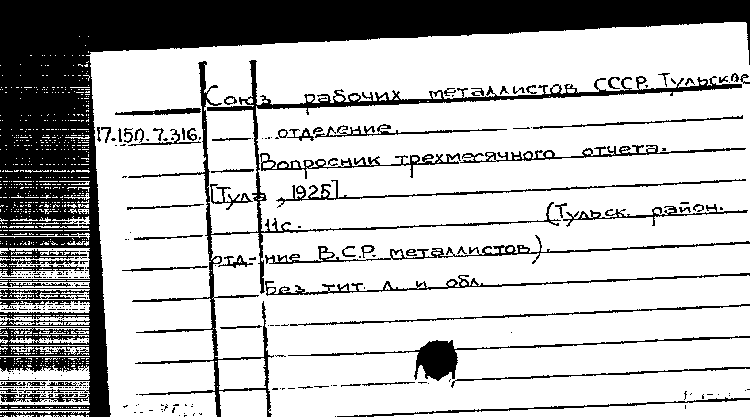 Союз рабочих металлистов СССР. Тульское
17.150.7.316. отделение.
Вопросник трехмесячного отчета.
[Тула, 1925].
11с. (Тульск. район.
отд-ние В.С.Р. металлистов).
Без тит. л. и обл.